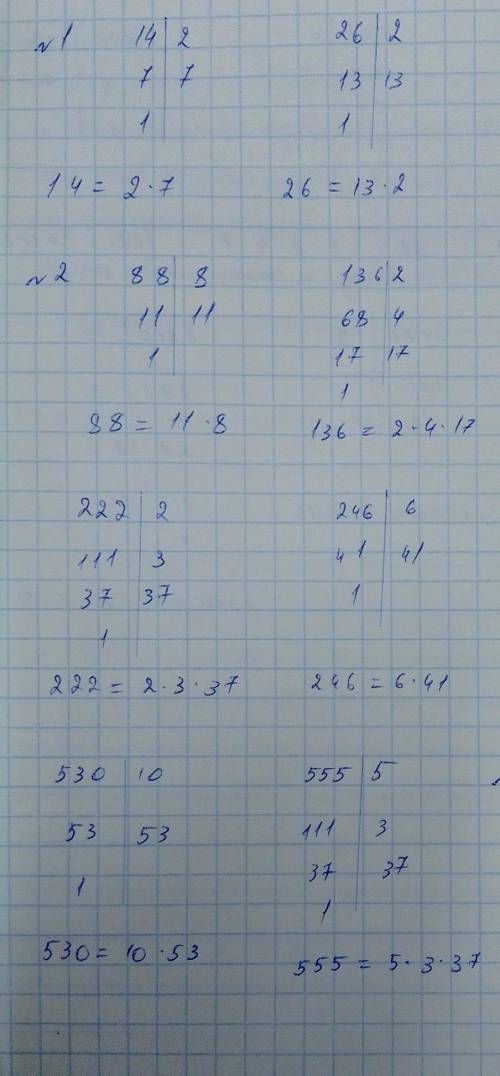 №1 14 | 2 26 | 2
7 | 7 13 | 13
1 | 1 |
14 = 2 · 7 26 = 13 · 2
№2 88 | 8 136 | 2
11 | 11 68 | 4
1 | 17 | 17
1
88 = 11 · 8 136 = 2 · 4 · 17
222 | 2 246 | 6
111 | 3 41 | 41
37 | 37 1 |
1
222 = 2 · 3 · 37 246 = 6 · 41
530 | 10 555 | 5
53 | 53 111 | 3
1 | 37 | 37
1
530 = 10 · 53 555 = 5 · 3 · 37